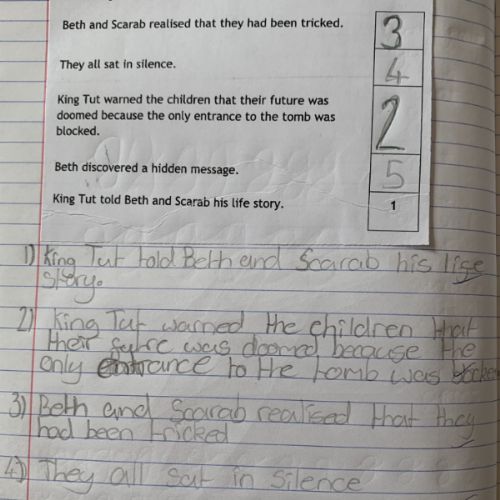 Beth and Scarab realised that they had been tricked. 3
They all sat in silence. 4
King Tut warned the children that their future was
doomed because the only entrance to the tomb was
blocked. 2
Beth discovered a hidden message. 5
King Tut told Beth and Scarab his life story. 1
1) King Tut told Beth and Scarab his life
story.
2) King Tut warned the children that
their futre was doomed because the
only entrance to the tomb was
3) Beth and Scarab realised that they
had been tricked
4) They all sat in silence